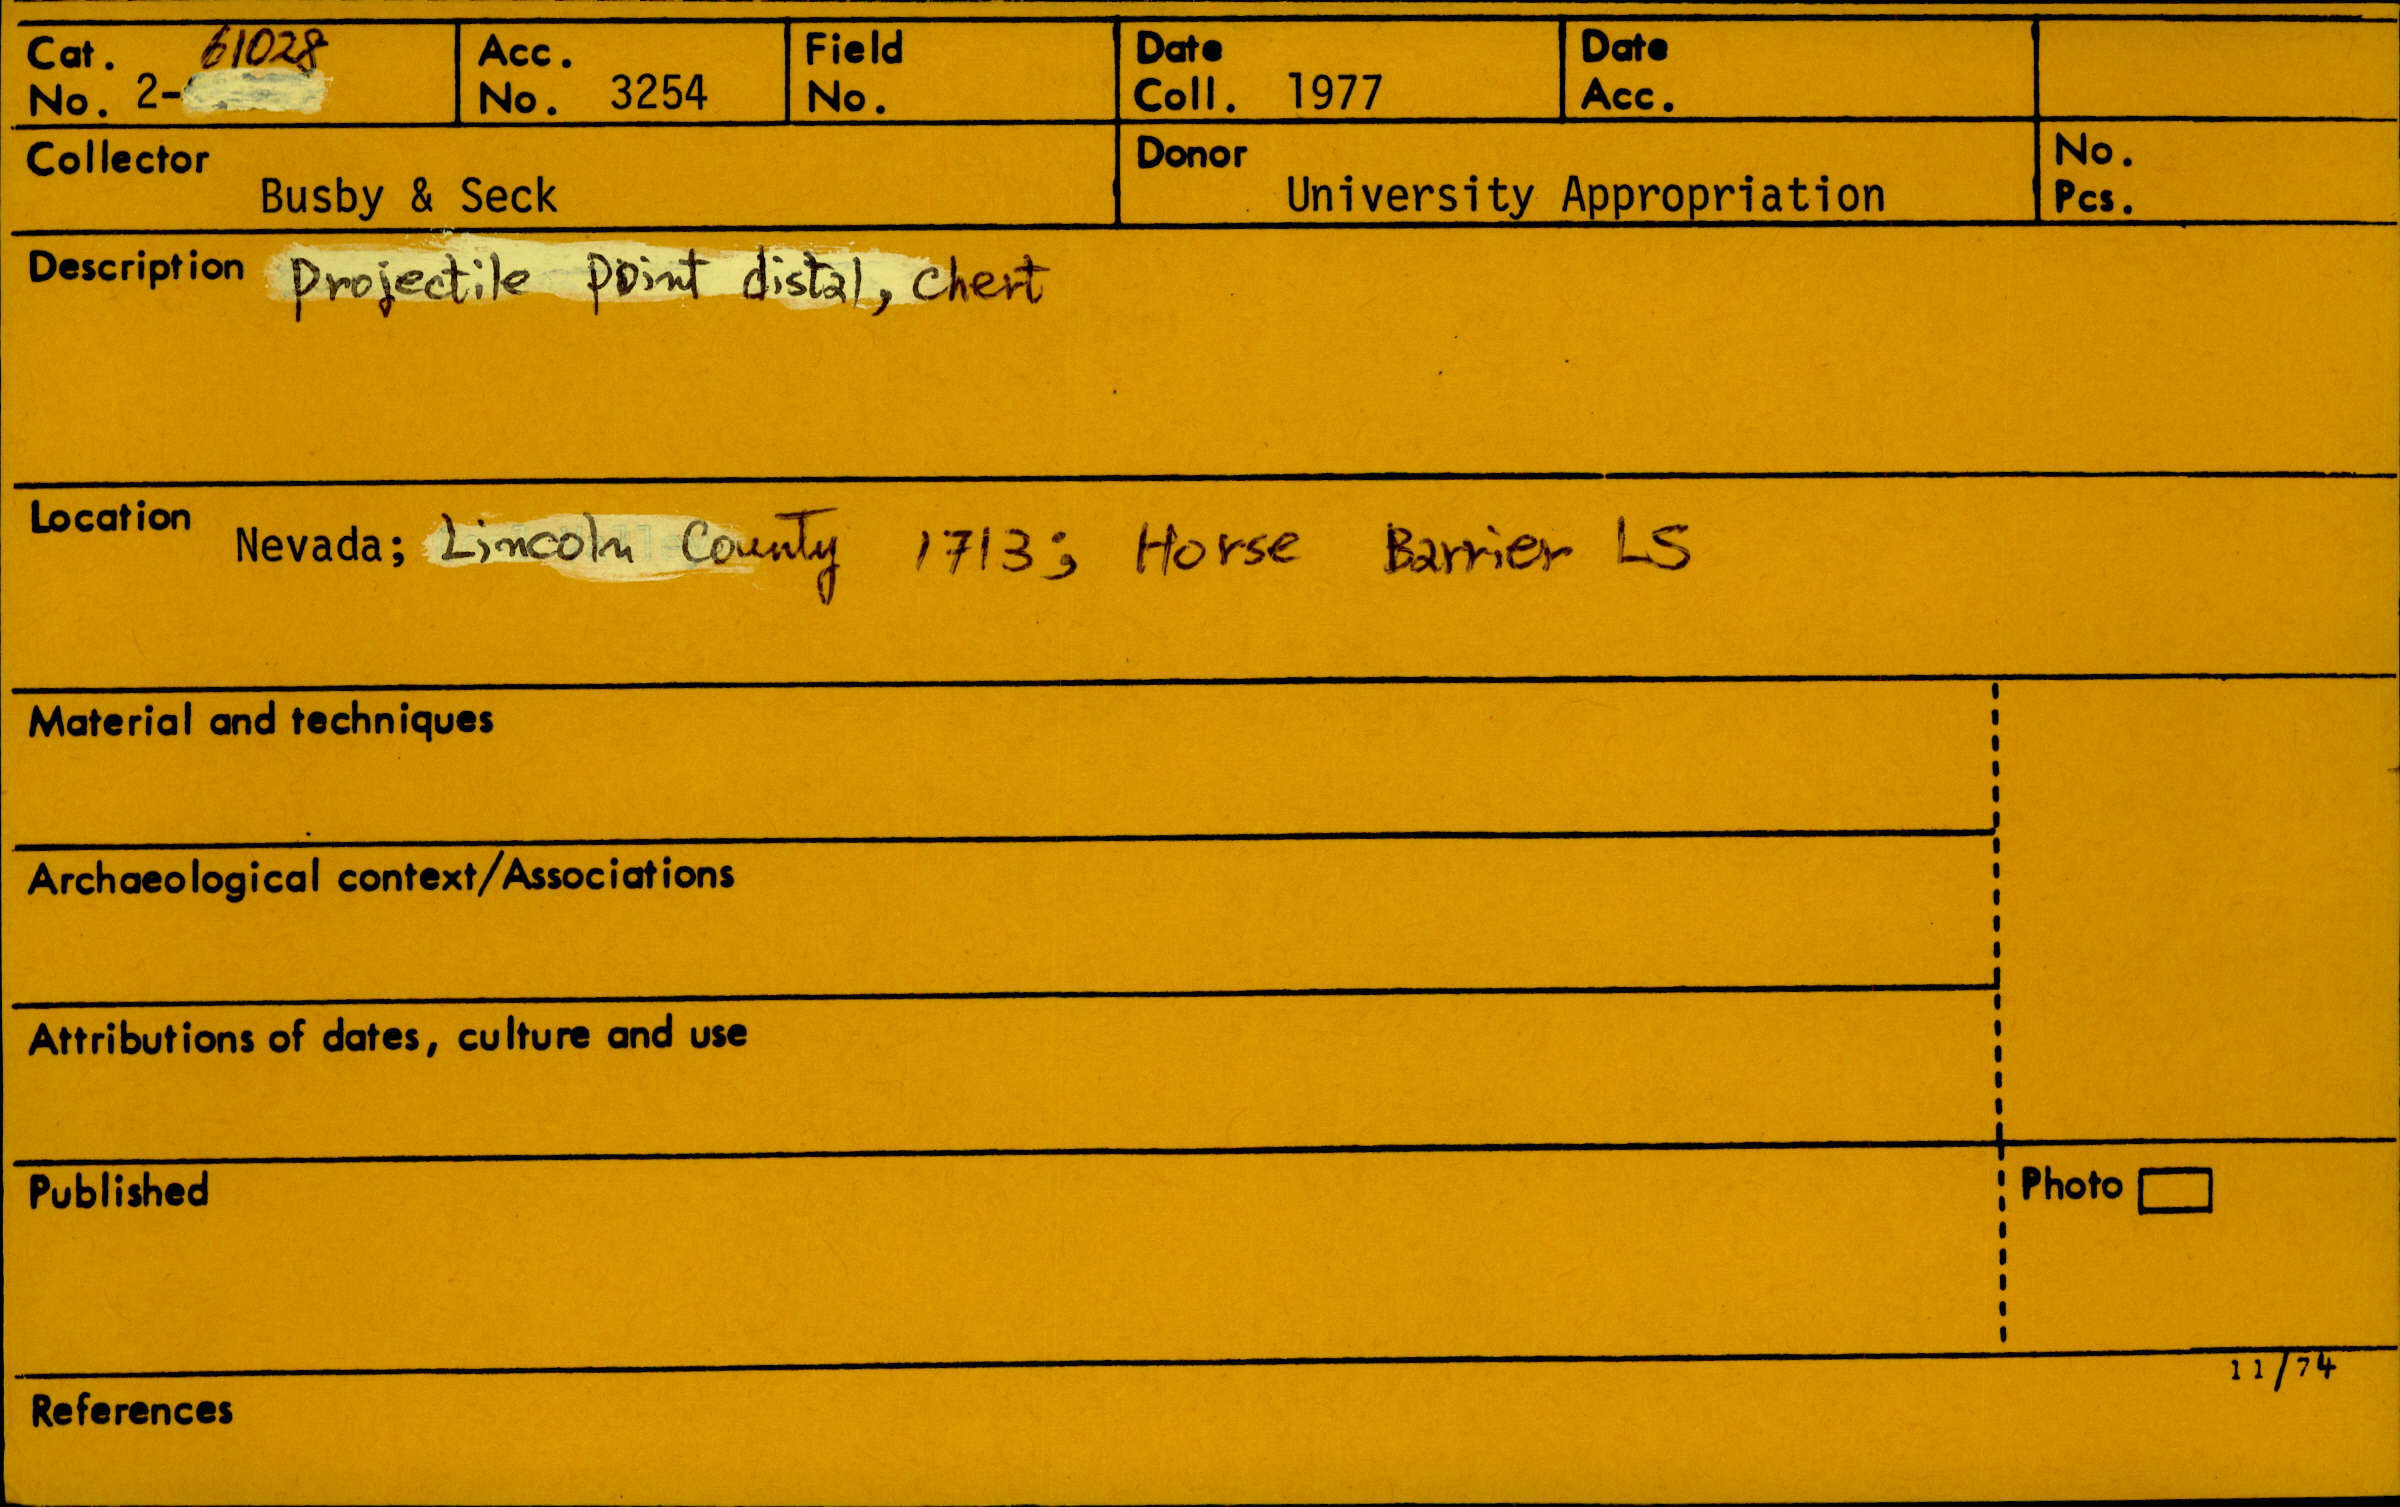 Cat. No. 2-61028
Acc. No. 3254
Field No.
Date Coll. 1977
Date Acc.
Collector Busby & Seck
Donor University Appropriation
No. Pcs.
Description projectile point distal, chert
Location Nevada; Lincoln County 1713; Horse Barrier LS
Material and techniques
Archaeological context/Associations
Attributions of dates, culture and use
Published
Photo
11/74
References